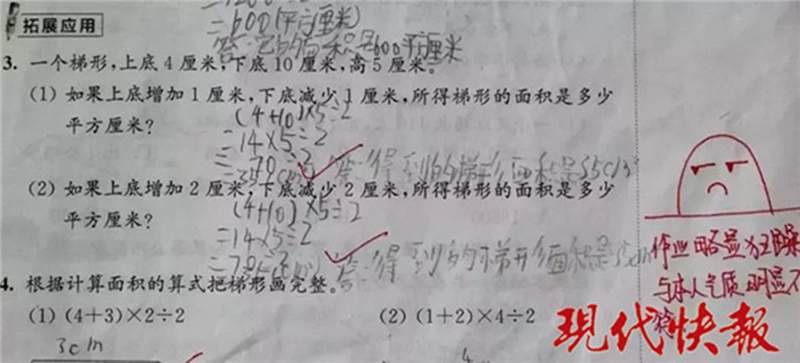 =600(平方厘米)
拓展应用
3. 一个梯形,上底 4 厘米,下底 10 厘米,高 5 厘米。
(1) 如果上底增加 1 厘米,下底减少 1 厘米,所得梯形的面积是多少
平方厘米?
(4+10)×5÷2
=14×5÷2
=70÷2
答:得到的梯形面积是35cm²
(2) 如果上底增加 2 厘米,下底减少 2 厘米,所得梯形的面积是多少
平方厘米?
(4+10)×5÷2
=14×5÷2
答:得到的梯形面积是
作业略显
与本人气质明显不
4. 根据计算面积的算式把梯形画完整。
(1) (4+3)×2÷2
(2) (1+2)×4÷2
3cm
4
现代快报